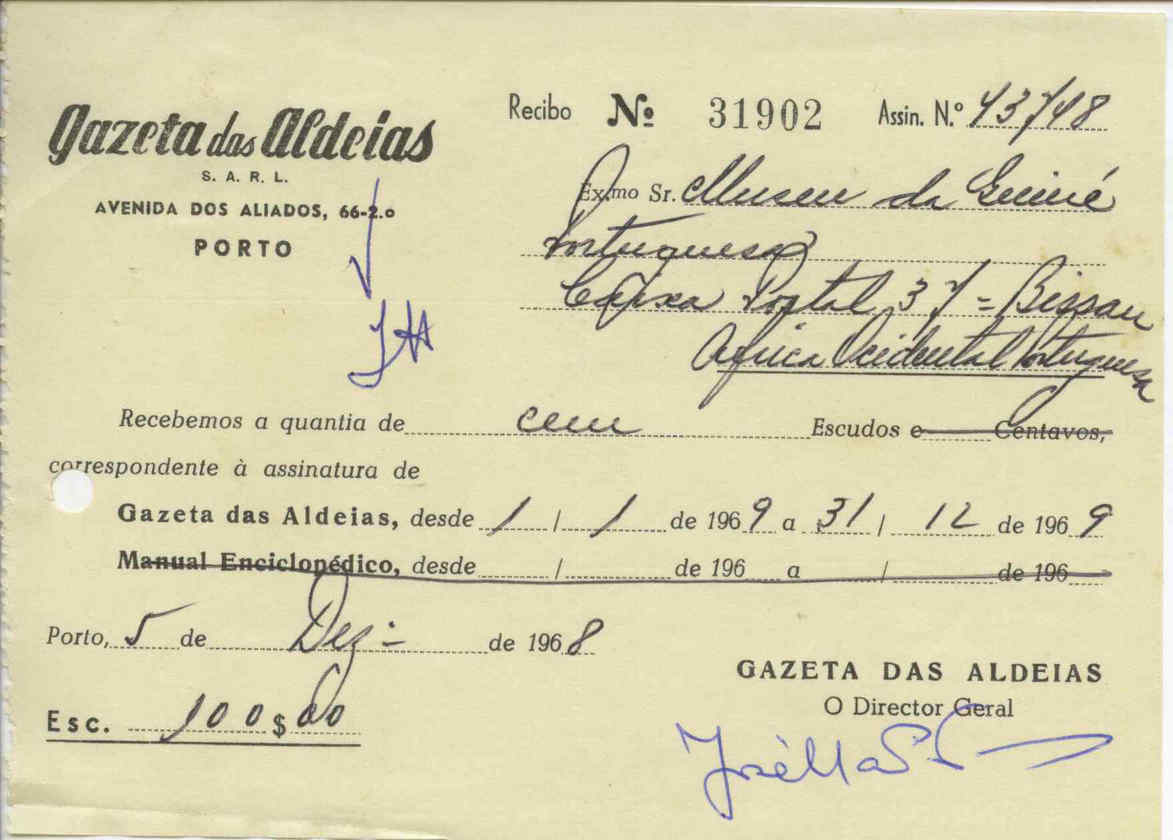 Gazeta das Aldeias
S. A. R. L.
AVENIDA DOS ALIADOS, 66-2.o
PORTO
Recibo Nº 31902 Assin. N.º
Ex.mo Sr. Museu da Guiné
Portuguesa
Caixa Postal 37 = Bissau
Africa Ocidental Portuguesa
Recebemos a quantia de cem Escudos e Centavos,
correspondente à assinatura de
Gazeta das Aldeias, desde 1 / 1 de 1969 a 31 / 12 de 1969
Manual Enciclopédico, desde / de 196 a / de 196
Porto, 5 de Dez.- de 1968
Esc. 100$00
GAZETA DAS ALDEIAS
O Director Geral